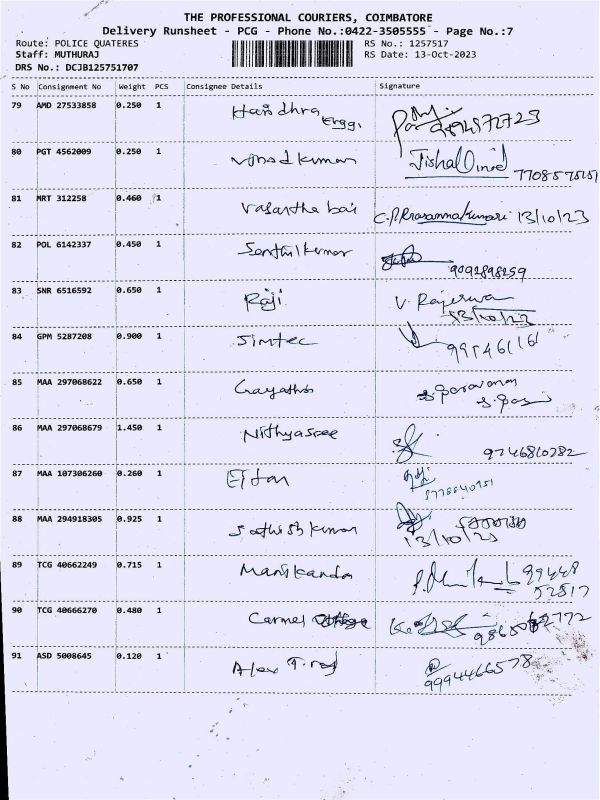 THE PROFESSIONAL COURIERS, COIMBATORE
Delivery Runsheet - PCG - Phone No.:0422-3505555 - Page No.:7
Route: POLICE QUATERES RS No.: 1257517
Staff: MUTHURAJ RS Date: 13-Oct-2023
DRS No.: DCJB125751707
S No Consignment No Weight PCS Consignee Details Signature
79 AMD 27533858 0.250 1 Haridhra Engg.
80 PGT 4562009 0.250 1 Vinod kumar
81 MRT 312258 0.460 1 Vasantha bai C.P.Prasannakumari 13/10/23
82 POL 6142337 0.450 1 Senthil kumar 9092898259
83 SNR 6516592 0.650 1 Raji. V. Rajeswa
13/10/23
84 GPM 5287208 0.900 1 Simtec
85 MAA 297068622 0.650 1 Gayathri
86 MAA 297068679 1.450 1 Nithyasree 9746810782
87 MAA 107306260 0.260 1
88 MAA 294918305 0.925 1 Sathish kumar
13/10/23
89 TCG 40662249 0.715 1 Manikanda 99448
52817
90 TCG 40666270 0.480 1 Carmel
91 ASD 5008645 0.120 1 Alex 9994466578